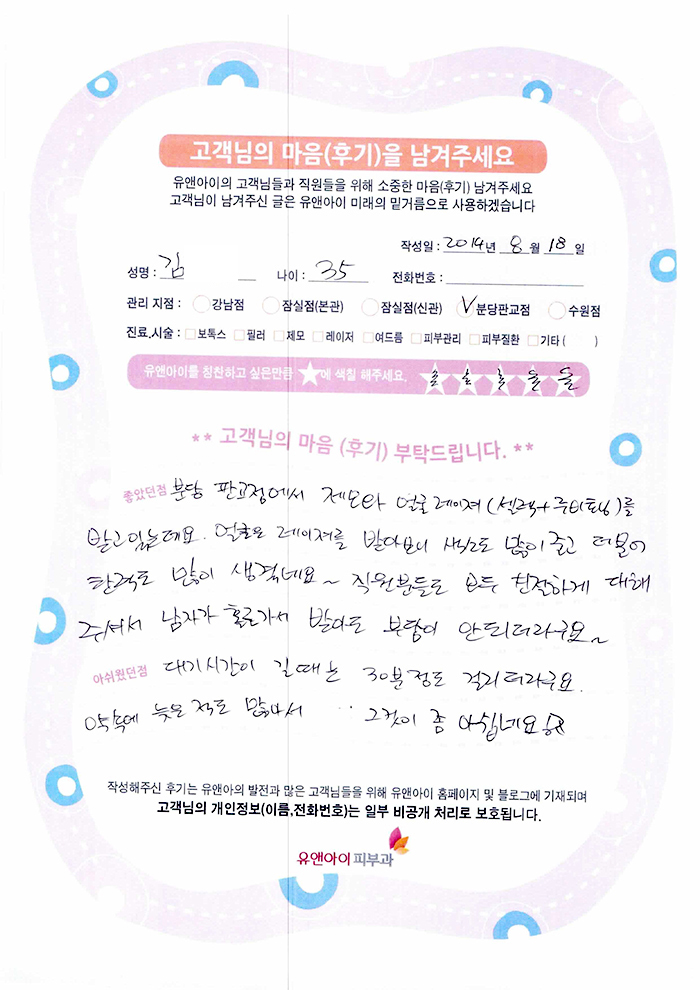 고객님의 마음(후기)을 남겨주세요
유앤아이의 고객님들과 직원들을 위해 소중한 마음(후기) 남겨주세요
고객님이 남겨주신 글은 유앤아이 미래의 밑거름으로 사용하겠습니다
작성일 : 2014년 8월 18일
성명 : 김 나이 : 35 전화번호 :
관리 지점 : 강남점 잠실점(본관) 잠실점(신관) V 분당판교점 수원점
진료.시술 : 보톡스 필러 제모 레이저 여드름 피부관리 피부질환 기타 ( )
유앤아이를 칭찬하고 싶은만큼 ★에 색칠 해주세요.
** 고객님의 마음 (후기) 부탁드립니다. **
좋았던점 분당 판교점에서 제모와 얼굴레이져(셀렉+루비토닝)를
받고있는데요. 얼굴은 레이져를 받아보니 색소도 많이 줄고 더불어
탄력도 많이 생겼네요~ 직원분들도 모두 친절하게 대해
주셔서 남자가 홀로가서 받아도 부담이 안되더라구요~
아쉬웠던점 대기시간이 길때는 30분정도 걸리더라구요.
약속에 늦은적도 많아서 .. 그것이 좀 아쉽네요
작성해주신 후기는 유앤아의 발전과 많은 고객님들을 위해 유앤아이 홈페이지 및 블로그에 기재되며
고객님의 개인정보(이름,전화번호)는 일부 비공개 처리로 보호됩니다.
유앤아이피부과